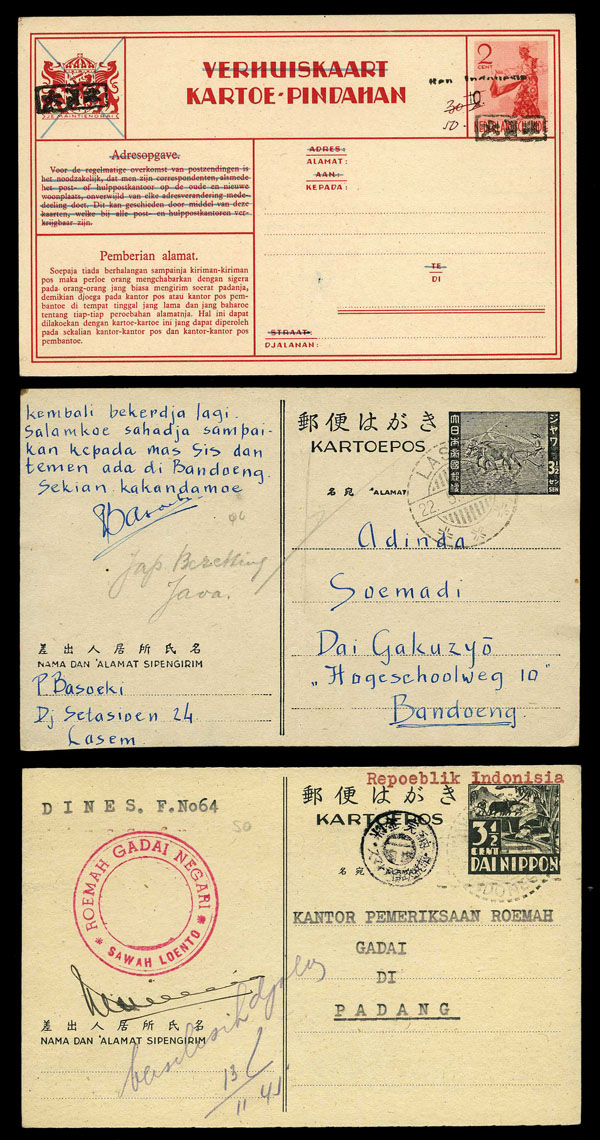 VERHUISKAART
KARTOE-PINDAHAN
2
CENT
30
10
50.
JE MAINTIENDRAI
Adresopgave.
Voor de regelmatige overkomst van postzendingen is
het noodzakelijk, dat men zijn correspondenten, alsmede
het post- of hulppostkantoor op de oude en nieuwe
woonplaats, onverwijld van elke adresverandering mede-
deeling doet. Dit kan geschieden door middel van deze
kaarten, welke bij alle post- en hulppostkantoren ver-
krijgbaar zijn.
Pemberian alamat.
Soepaja tiada berhalangan sampainja kiriman-kiriman
pos maka perloe orang mengchabarkan dengan sigera
pada orang-orang jang biasa mengirim soerat padanja,
demikian djoega pada kantor pos atau kantor pos pem-
bantoe di tempat tinggal jang lama dan jang baharoe
tentang tiap-tiap peroebahan alamatnja. Hal ini dapat
dilakoekan dengan kartoe-kartoe ini jang dapat diperoleh
pada sekalian kantor-kantor pos dan kantor-kantor pos
pembantoe.
ADRES:
ALAMAT:
AAN:
KEPADA:
TE
DI
STRAAT:
DJALANAN:
kembali bekerdja lagi.
Salamkoe sahadja sampai-
kan kepada mas Sis dan
temen ada di Bandoeng.
Sekian kakandamoe
Jap. Bezetting
Java.
差出人居所氏名
NAMA DAN 'ALAMAT SIPENGIRIM
P. Basoeki
Dj Setasioen 24
Lasem.
郵便はがき
KARTOEPOS
名宛 'ALAMAT
大日本帝國郵便
ジャワ
3½
セン
SEN
LAS
22.
Adinda
Soemadi
Dai Gakuzyō
„Hogeschoolweg 10"
Bandoeng.
DINES. F.No64
50
ROEMAH GADAI NEGARI
* SAWAH LOENTO *
差出人居所氏名
NAMA DAN 'ALAMAT SIPENGIRIM
13/11 45
Repoeblik Indonisia
郵便はがき
KARTOEPOS
名
3½
CENT
DAI NIPPON
KANTOR PEMERIKSAAN ROEMAH
GADAI
DI
PADANG